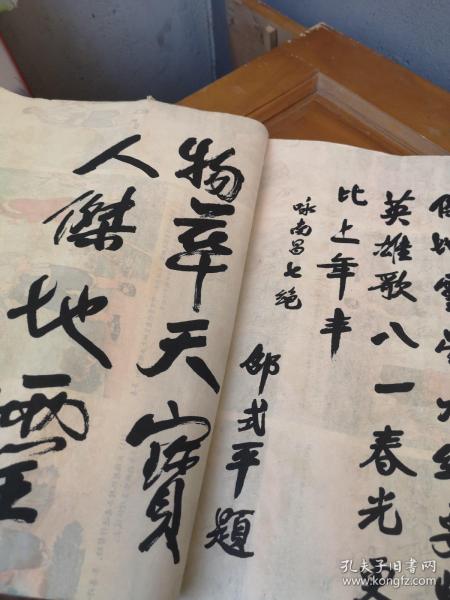 物華天寶
人傑地靈
英雄歌八一春光
比上年丰
咏南昌七绝
邵式平題
孔夫子旧书网
https://www.kongfz.com